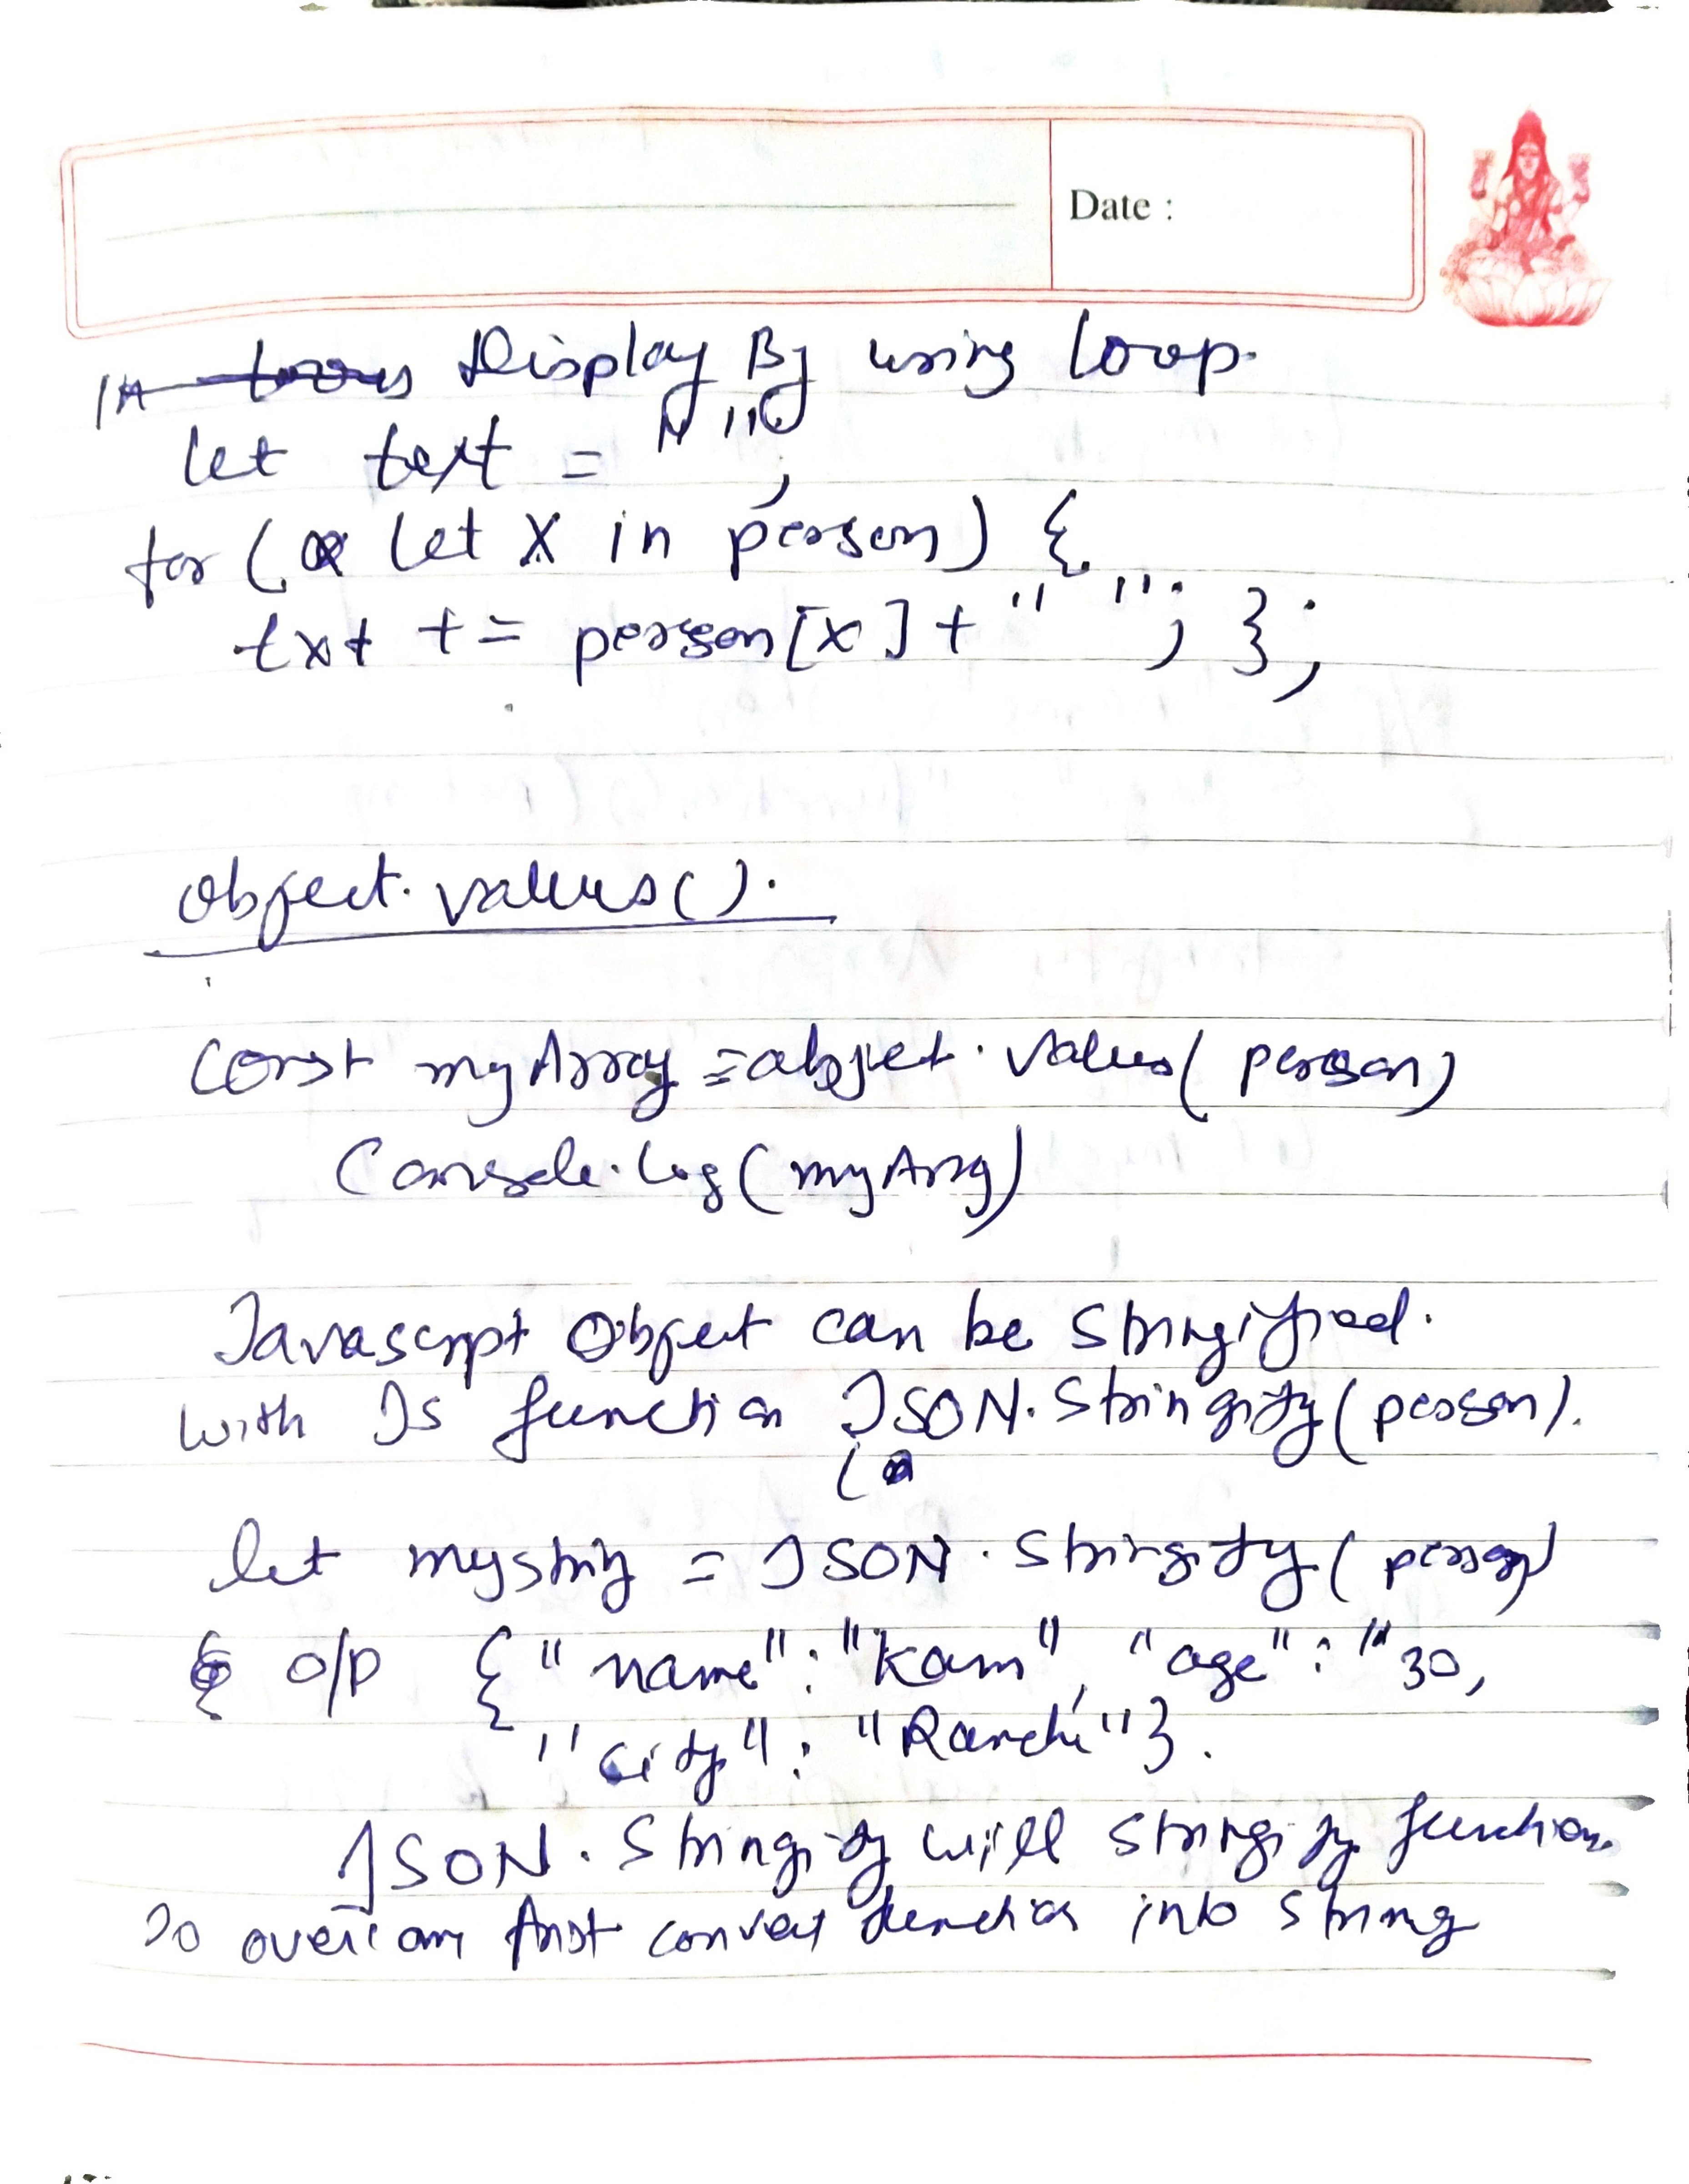 Date :
Display By using loop.
let text = " ";
for ( let x in person) {
txt += person[x] + " "; };
Object.values().
Const myArray = object.values( person)
Console.log( myArray)
Javascript Object can be Stringified.
with Js function JSON.Stringify( person).
let mystring = JSON.Stringify( person)
o/p { "name": "Kam", "age": "30,
"City": "Ranchi"}.
JSON.Stringify will stringify function
So overcom first convert function into string